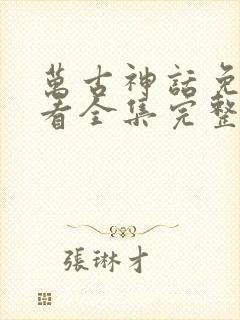 萬古神話免
看全集完整
張琳才